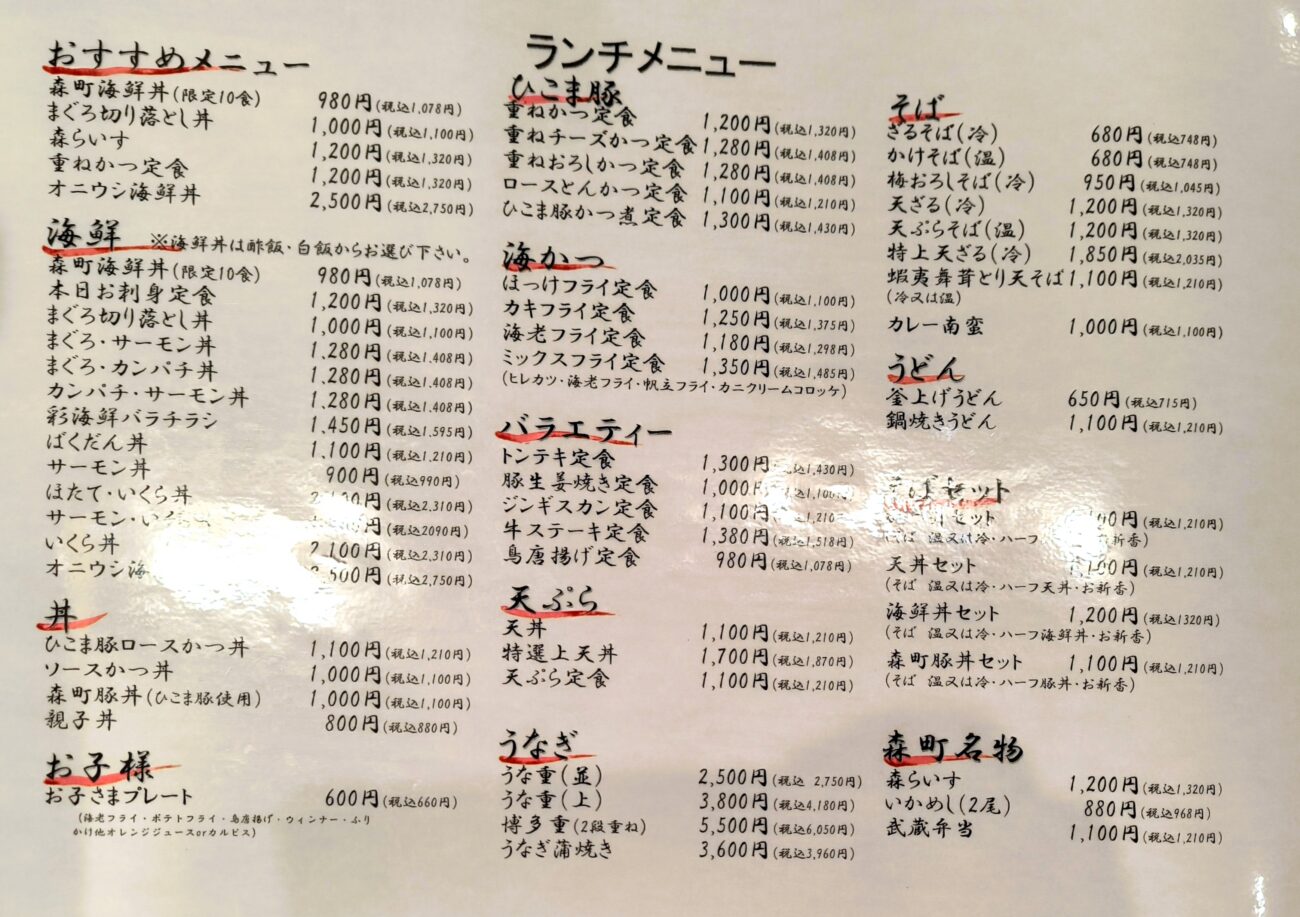 ランチメニュー
おすすめメニュー
森町海鮮丼(限定10食) 980円(税込1,078円)
まぐろ切り落とし丼 1,000円(税込1,100円)
森らいす 1,200円(税込1,320円)
重ねかつ定食 1,200円(税込1,320円)
オニウシ海鮮丼 2,500円(税込2,750円)
海鮮 ※海鮮丼は酢飯・白飯からお選び下さい。
森町海鮮丼(限定10食) 980円(税込1,078円)
本日お刺身定食 1,200円(税込1,320円)
まぐろ切り落とし丼 1,000円(税込1,100円)
まぐろ・サーモン丼 1.280円(税込1.408円)
まぐろ・カンパチ丼 1.280円(税込1.408円)
カンパチ・サーモン丼 1.280円(税込1.408円)
彩海鮮バラチラシ 1.450円(税込1.595円)
ばくだん丼 1,100円(税込1,210円)
サーモン丼 900円(税込990円)
ほたて・いくら丼 (税込2,310円)
サーモン・いく (税込2090円)
いくら丼 2,100円(税込2,310円)
オニウシ海 500円(税込2,750円)
丼
ひこま豚ロースかつ丼 1,100円(税込1,210円)
ソースかつ丼 1,000円(税込1,100円)
森町豚丼(ひこま豚使用) 1,000円(税込1,100円)
親子丼 800円(税込880円)
お子様
お子さまプレート 600円(税込660円)
(海老フライ・ポテトフライ・鳥唐揚げ・ウィンナー・ふり
かけ他オレンジジュースorカルピス)
ひこま豚
重ねかつ定食 1,200円(税込1,320円)
重ねチーズかつ定食 1,280円(税込1,408円)
重ねおろしかつ定食 1,280円(税込1,408円)
ロースとんかつ定食 1,100円(税込1,210円)
ひこま豚かつ煮定食 1,300円(税込1,430円)
海かつ
ほっけフライ定食 1,000円(税込1,100円)
カキフライ定食 1,250円(税込1,375円)
海老フライ定食 1,180円(税込1,298円)
ミックスフライ定食 1,350円(税込1,485円)
(ヒレカツ・海老フライ・帆立フライ・カニクリームコロッケ)
バラエティー
トンテキ定食 1,300円(税込1,430円)
豚生姜焼き定食 1,000円(税込1,100円)
ジンギスカン定食 1,100円(税込1,210円)
牛ステーキ定食 1,380円(税込1,518円)
鳥唐揚げ定食 980円(税込1,078円)
天ぷら
天丼 1,100円(税込1,210円)
特選上天丼 1,700円(税込1,870円)
天ぷら定食 1,100円(税込1,210円)
うなぎ
うな重(並) 2,500円(税込 2,750円)
うな重(上) 3,800円(税込4,180円)
博多重(2段重ね) 5,500円(税込6,050円)
うなぎ蒲焼き 3,600円(税込3,960円)
そば
ざるそば(冷) 680円(税込748円)
かけそば(温) 680円(税込748円)
梅おろしそば(冷) 950円(税込1,045円)
天ざる(冷) 1,200円(税込1,320円)
天ぷらそば(温) 1,200円(税込1,320円)
特上天ざる(冷) 1,850円(税込2,035円)
蝦夷舞茸とり天そば 1,100円(税込1,210円)
(冷又は温)
カレー南蛮 1,000円(税込1,100円)
うどん
釜上げうどん 650円(税込715円)
鍋焼きうどん 1,100円(税込1,210円)
そばセット
セット 100円(税込1,210円)
(そば 温又は冷・ハーフ お新香)
天丼セット 1,100円(税込1,210円)
(そば 温又は冷・ハーフ天丼・お新香)
海鮮丼セット 1,200円(税込1320円)
(そば 温又は冷・ハーフ海鮮丼・お新香)
森町豚丼セット 1,100円(税込1,210円)
(そば 温又は冷・ハーフ豚丼・お新香)
森町名物
森らいす 1,200円(税込1,320円)
いかめし(2尾) 880円(税込968円)
武蔵弁当 1,100円(税込1,210円)